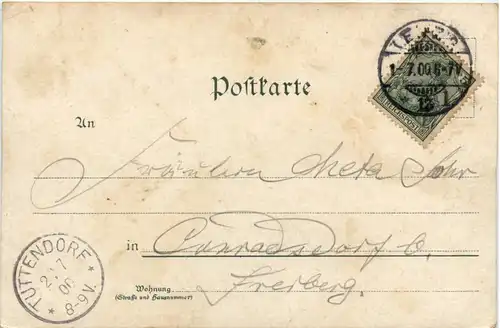 1.7.00.6-7V.
12
REICHSPOST
Postkarte
An
Fräulein Meta
in Conradsdorf b.
Freiberg.
Wohnung
(Straße und Hausnummer)
TUTTENDORF
2/7
00
8-9V.